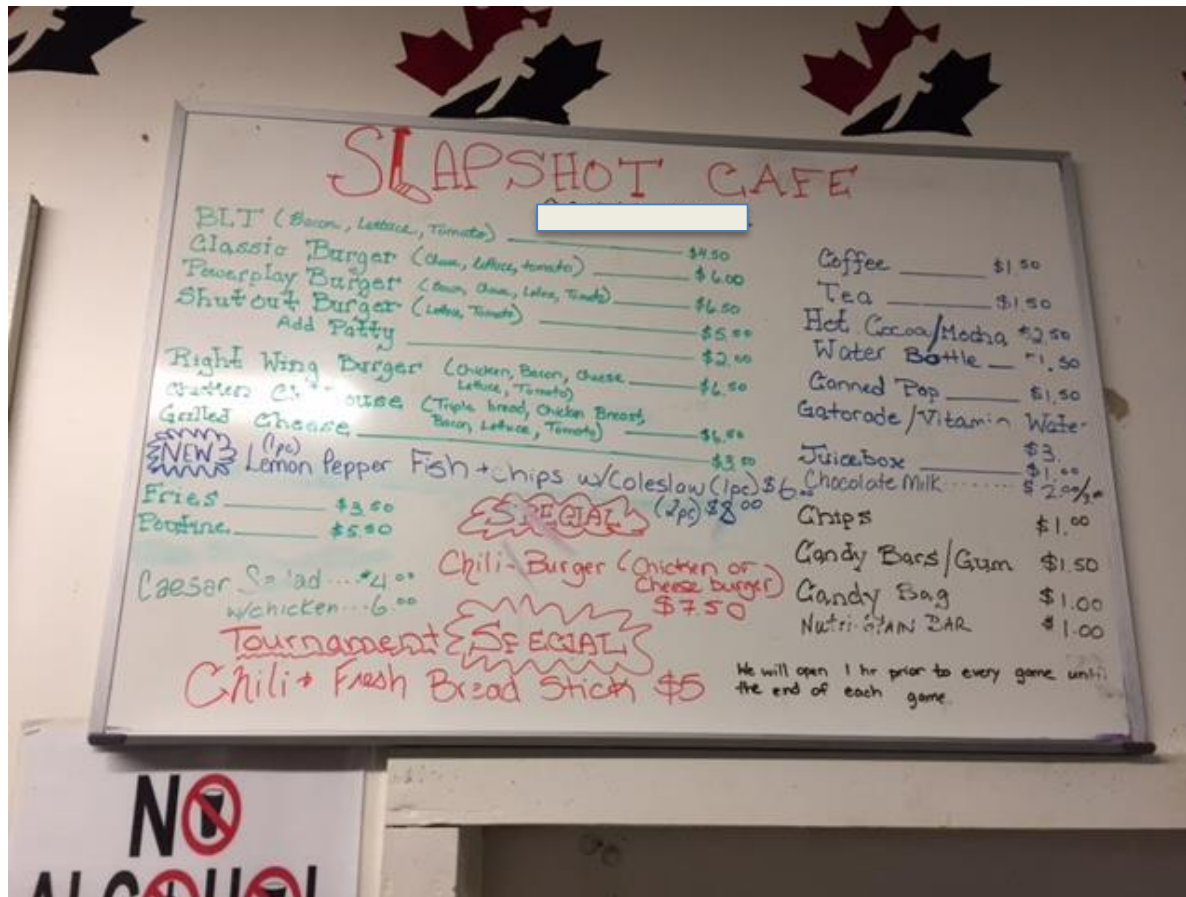 SLAPSHOT CAFE
BLT (Bacon, Lettuce, Tomato) $4.50
Classic Burger (Cheese, Lettuce, tomato) $6.00
Powerplay Burger (Bacon, Cheese, Lettuce, Tomato) $6.50
Shutout Burger (Lettuce, Tomato) $5.50
Add Patty $2.00
Right Wing Burger (Chicken, Bacon, Cheese $6.50
Lettuce, Tomato)
ouse (Triple bread, Chicken Breast,
Bacon, Lettuce, Tomato) $6.50
Grilled Cheese $3.50
NEW (1pc) Lemon Pepper Fish + chips w/Coleslaw (1pc) $6
(2pc) $8.00
Fries $3.50
Poutine $5.50
SPECIAL
Chili-Burger (Chicken or
Cheese burger)
$7.50
Caesar Salad ... $4.00
w/chicken ... 6.00
Tournament SPECIAL
Chili + Fresh Bread Stick $5
Coffee $1.50
Tea $1.50
Hot Cocoa/Mocha $2.50
Water Bottle 1.50
Canned Pop $1.50
Gatorade/Vitamin Water
$3.
Juicebox $1.00
Chocolate Milk ........ $2.00/
Chips $1.00
Candy Bars/Gum $1.50
Candy Bag $1.00
Nutri-GRAIN BAR $1.00
We will open 1 hr prior to every game until
the end of each game.
NO
ALCOHOL